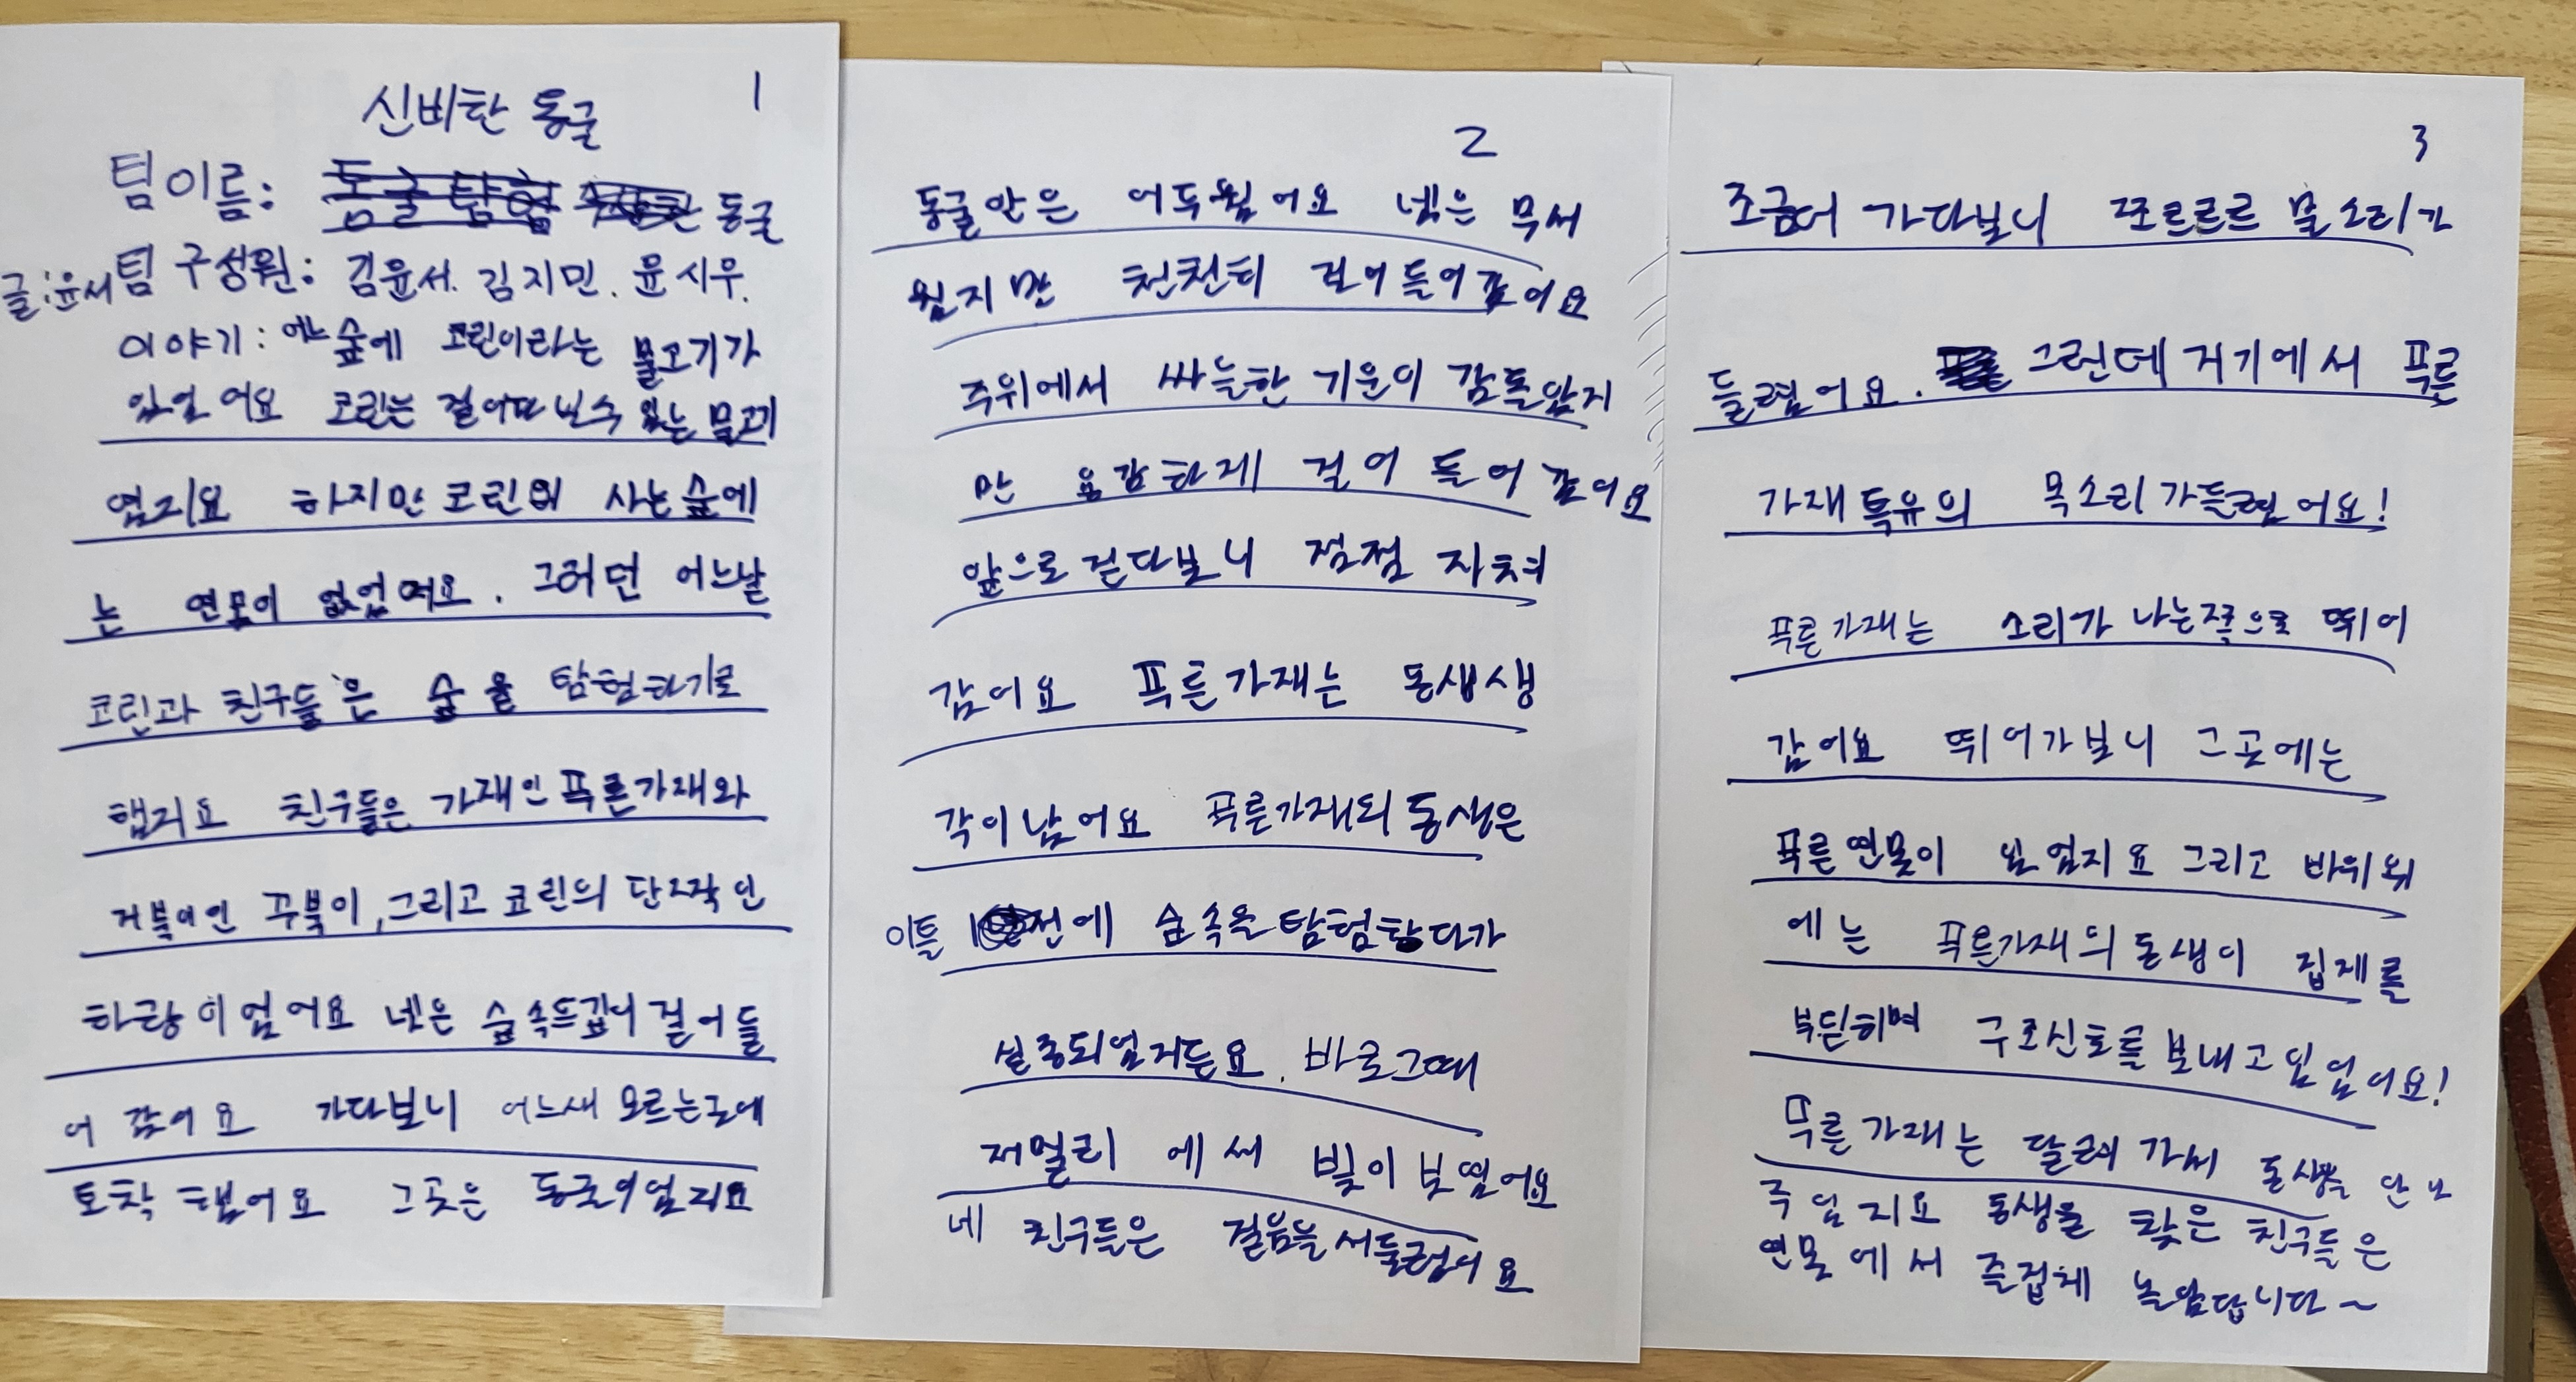 신비한 동굴 1
팀이름: 동굴
팀 구성원: 김윤서. 김지민. 윤시우.
글:윤서
이야기: 어느숲에 코린이라는 물고기가
있었어요 코린는 걸어다닐수 있는 물고기
였지요 하지만 코린의 사는숲에
는 연못이 없었어요. 그러던 어느날
코린과 친구들은 숲을 탐험하기로
했지요 친구들은 가재인 푸른가재와
거북이인 꾸북이, 그리고 코린의 단짝인
하랑이었어요 넷은 숲속드깊이 걸어들
어 갔어요 가다보니 어느새 모르는곳에
도착 했어요 그곳은 동굴이였지요
2
동굴안은 어두웠어요 넷은 무서
웠지만 천천히 걸어들어갔어요
주위에서 싸늘한 기운이 감돌았지
만 용감하게 걸어 들어 갔어요
앞으로 걷다보니 점점 지쳐
갔어요 푸른가재는 동생생
각이났어요 푸른가재의 동생은
이틀 전에 숲속을탐험하다가
실종되었거든요. 바로그때
저멀리 에서 빛이보였어요
네 친구들은 걸음을서둘렀어요
3
조금더 가다보니 쪼르르르 물소리가
들렸어요. 그런데 거기에서 푸른
가재특유의 목소리가들렸어요!
푸른가재는 소리가 나는쪽으로 뛰어
갔어요 뛰어가보니 그곳에는
푸른연못이 있었지요 그리고 바위위
에는 푸른가재의동생이 집게를
부딛히며 구조신호를보내고있었어요!
푸른가재는 달려가서 동생을 안아
주었지요 동생을 찾은 친구들은
연못에서 즐겁게 놀았답니다~